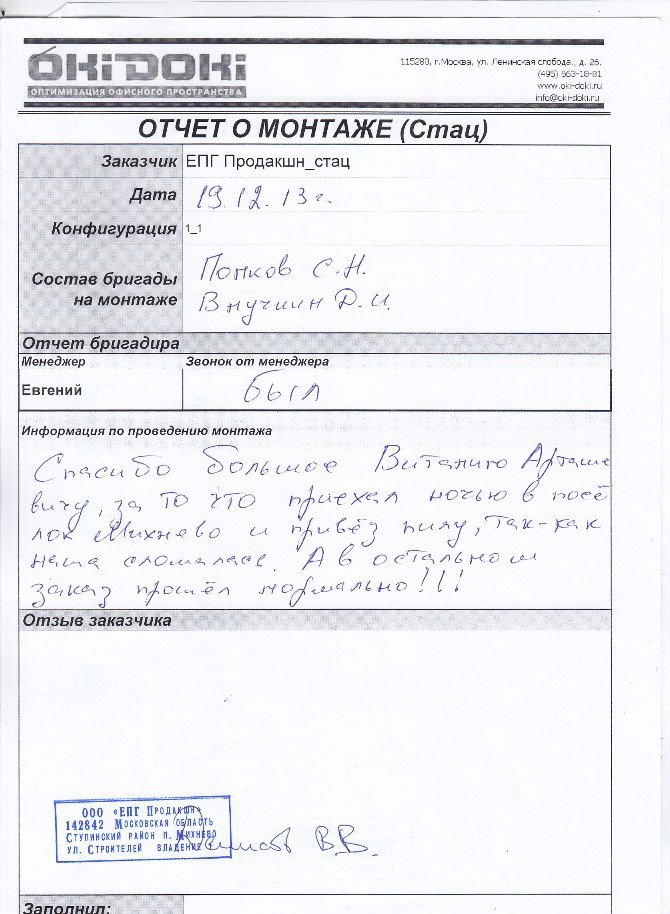 OKIDOKI
ОПТИМИЗАЦИЯ ОФИСНОГО ПРОСТРАНСТВА
115280, г.Москва, ул. Ленинская слобода., д. 26,
(495) 663-18-81
www.oki-doki.ru
info@oki-doki.ru
ОТЧЕТ О МОНТАЖЕ (Стац)
Заказчик ЕПГ Продакшн_стац
Дата 19.12.13г.
Конфигурация 1_1
Состав бригады
на монтаже
Попков С.Н.
Внучкин Д.И.
Отчет бригадира
Менеджер Звонок от менеджера
Евгений был
Информация по проведению монтажа
Спасибо большое Виталию Арташе
вичу, за то что приехал ночью в посё
лок Михнево и привёз пилу, так-как
наша сломалась. А в остальном
заказ прошёл нормально!!!
Отзыв заказчика
ООО «ЕПГ Продакшн»
142842 Московская область
Ступинский район п. Михнево
ул. Строителей владение
В.В.
Заполнил: